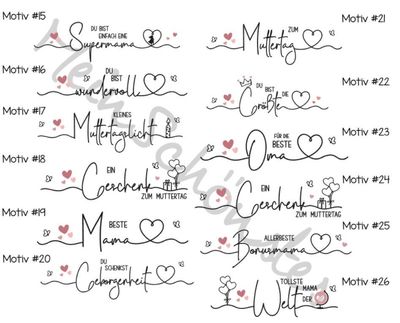 Motiv #15
DU BIST
EINFACH EINE
Supermama
Motiv #16
DU
BIST
wundervoll
Motiv #17
KLEINES
Muttertagslicht
Motiv #18
EIN
Geschenk
ZUM MUTTERTAG
Motiv #19
BESTE
Mama
Motiv #20
DU
SCHENKST
Geborgenheit
Motiv #21
ZUM
Muttertag
Motiv #22
DU
BIST
DIE
Größte
Motiv #23
FÜR DIE
BESTE
Oma
Motiv #24
EIN
Geschenk
ZUM MUTTERTAG
Motiv #25
ALLERBESTE
Bonusmama
Motiv #26
TOLLSTE
MAMA
DER
Welt